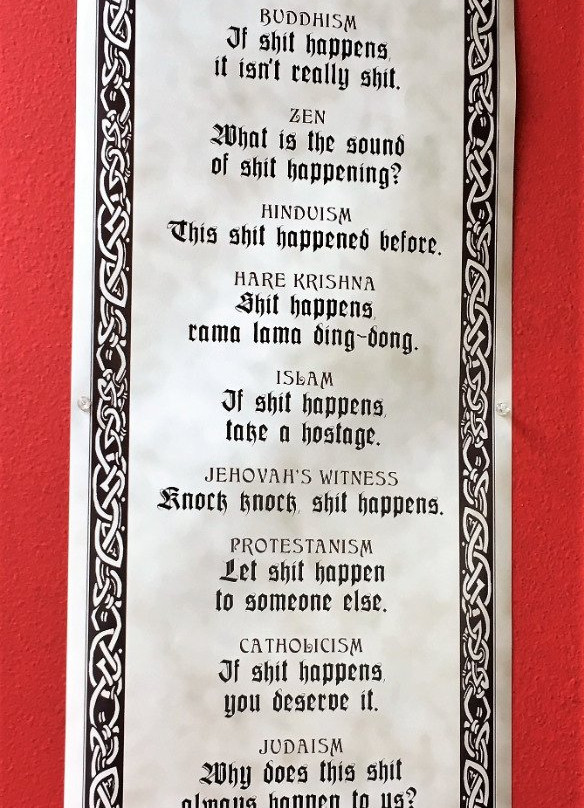 BUDDHISM
If shit happens,
it isn't really shit.
ZEN
What is the sound
of shit happening?
HINDUISM
This shit happened before.
HARE KRISHNA
Shit happens,
rama lama ding-dong.
ISLAM
If shit happens,
take a hostage.
JEHOVAH'S WITNESS
Knock knock, shit happens.
PROTESTANISM
Let shit happen
to someone else.
CATHOLICISM
If shit happens,
you deserve it.
JUDAISM
Why does this shit
always happen to us?